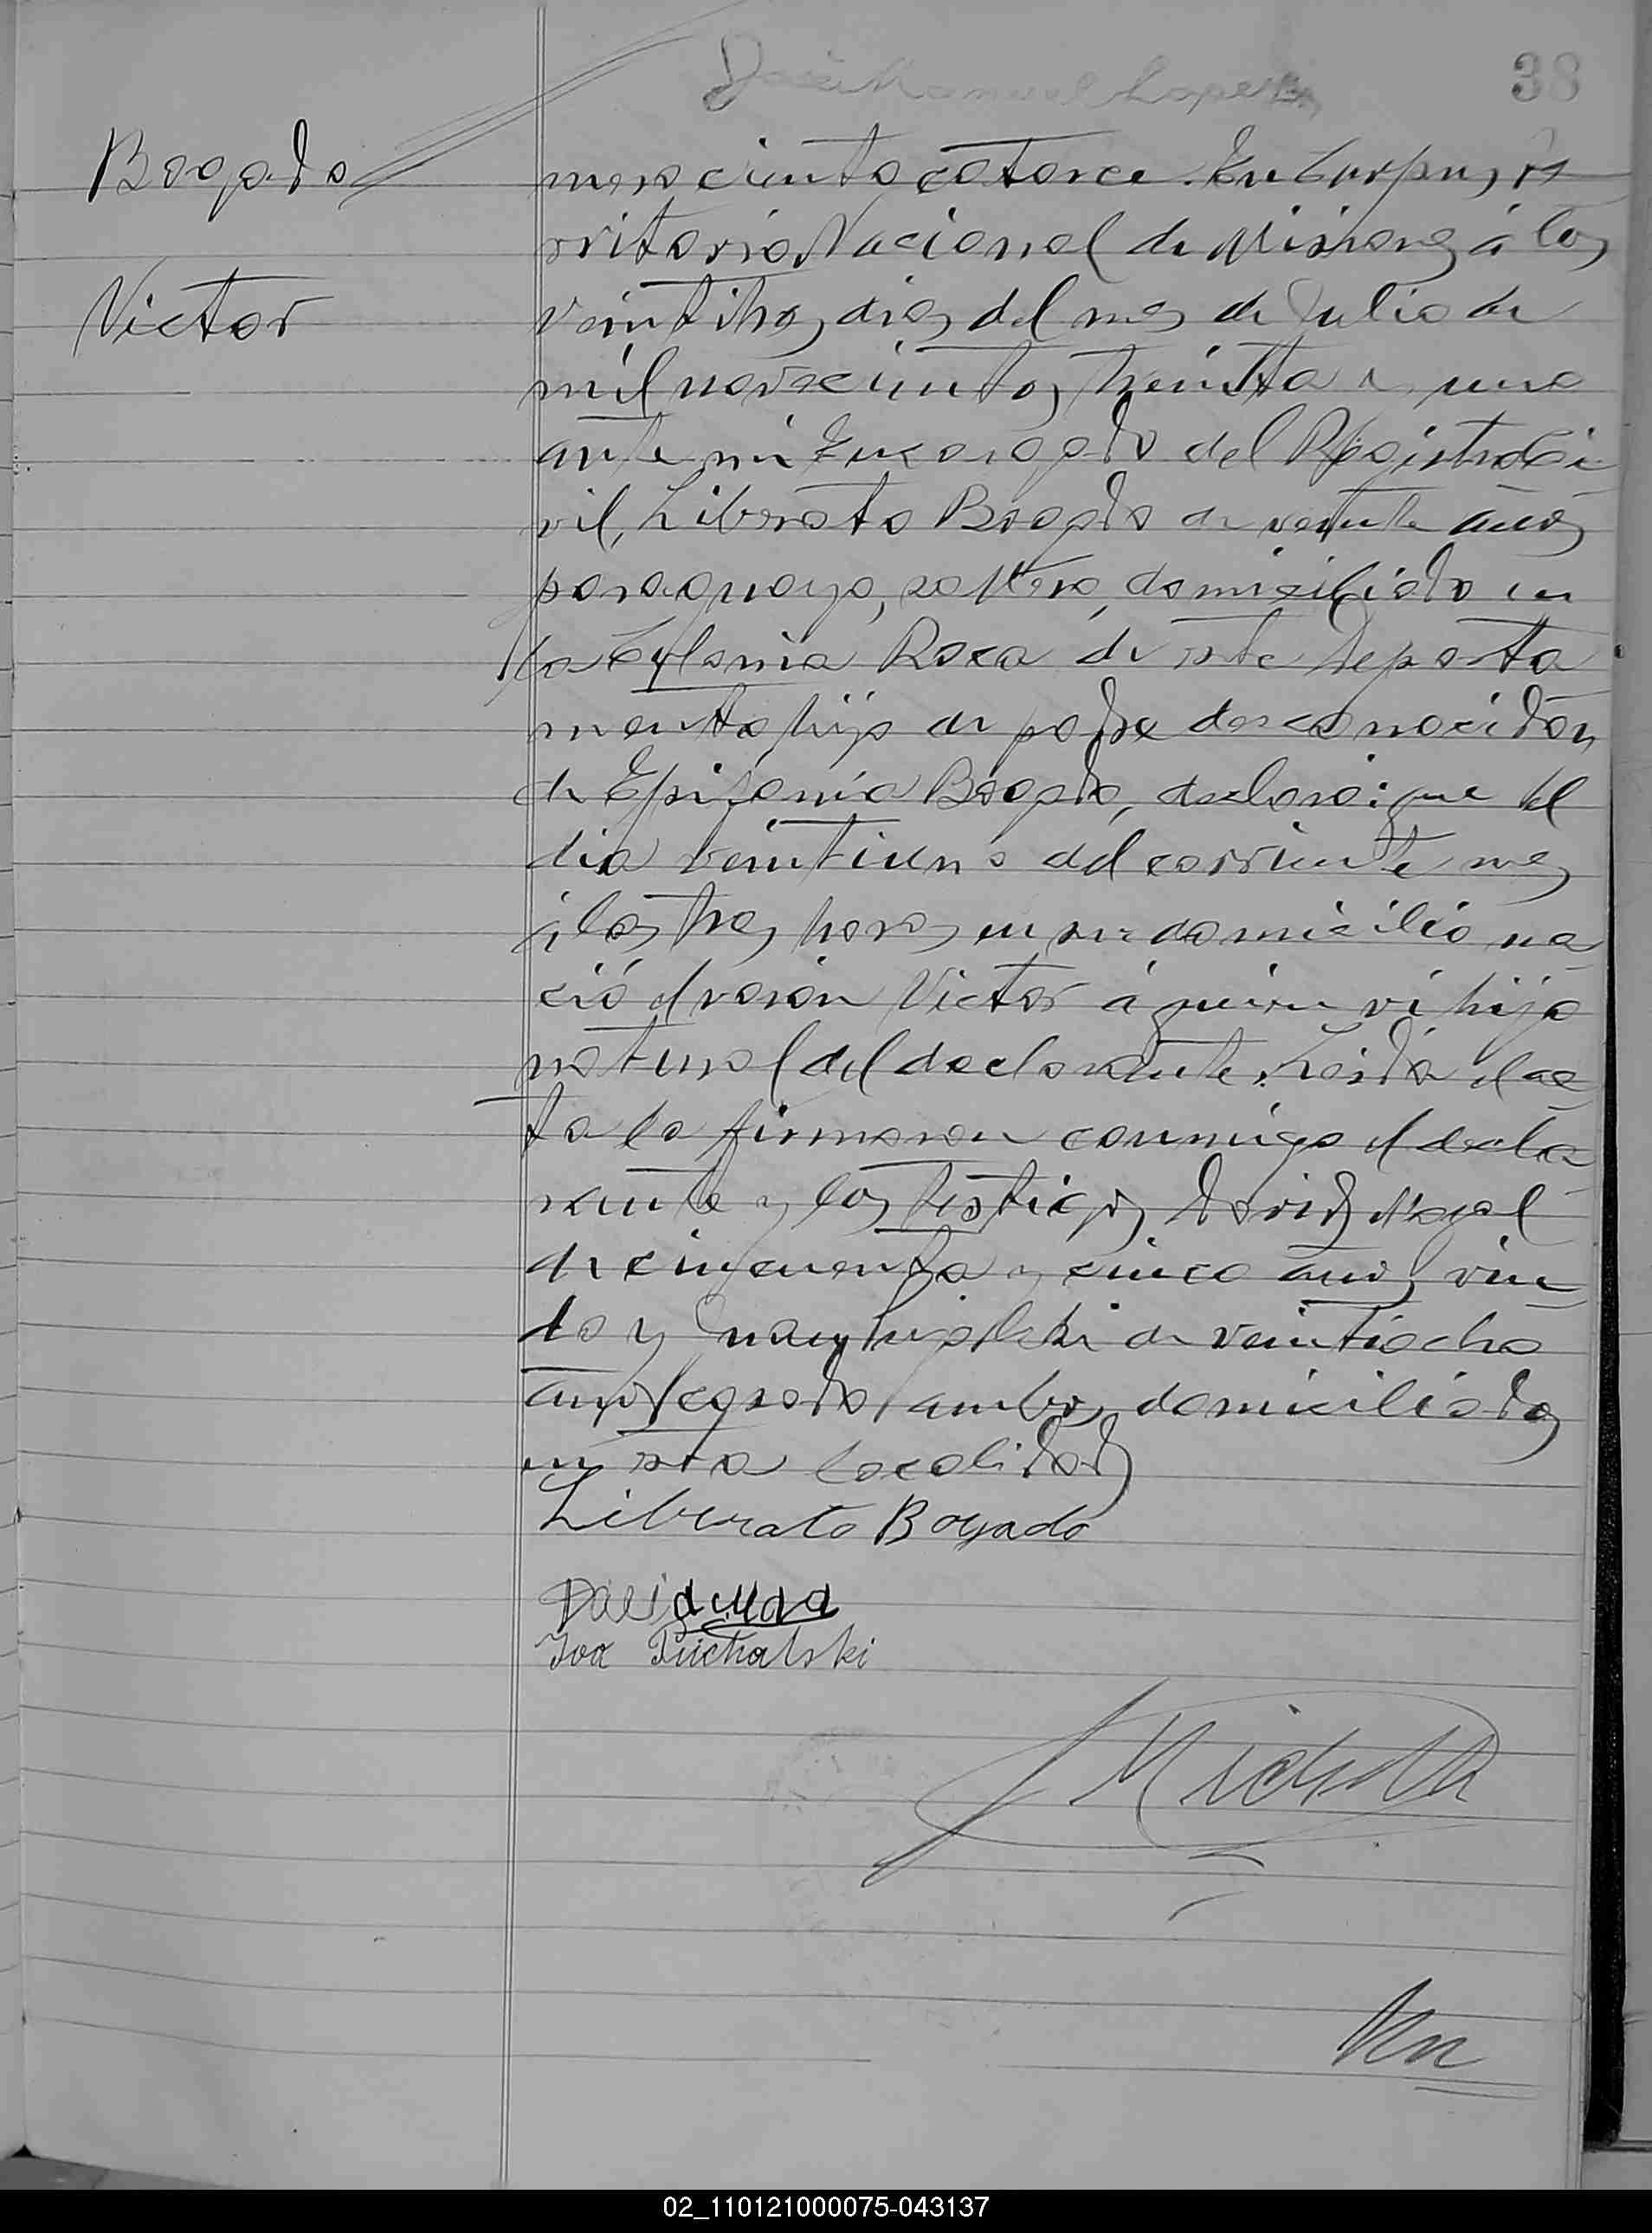 José Manuel Lopez
38
Bogado
Victor
mero ciento catorce. En Corpus, te
rritorio Nacional de Misiones á los
veintitres dias del mes de Julio de
mil novecientos treinta y uno
ante mi Encargado del Registro Ci
vil, Liberato Bogado de veinte años
paraguayo, soltero, domiciliado en
la Colonia Roca de este Departa
mento, hijo de padre desconocido y
de Epifania Bogado, declaro: que el
dia veintiuno del corriente mes
á las tres horas en su domicilio na
ció el varon Victor á quien vi hijo
natural del declarante. Leida el ac
ta la firmaron conmigo el decla
rante y los testigos David
de cincuenta y cinco años viu
do y de veintiocho
años casado ambos domiciliados
en esta localidad
Liberato Bogado
David
Iva Puchalski
02_110121000075-043137